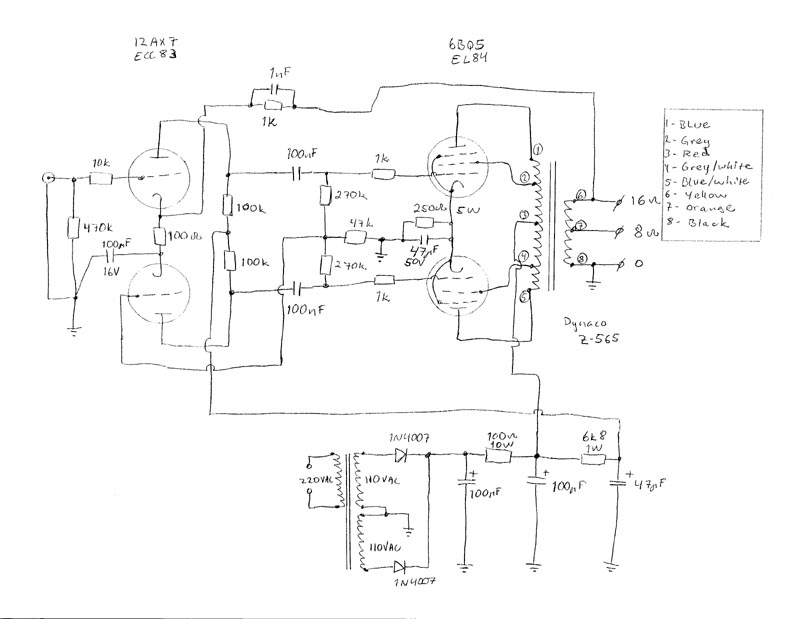 12AX7
ECC83
6BQ5
EL84
1nF
1k
1- Blue
2- Grey
3- Red
4- Grey/white
5- Blue/white
6- Yellow
7- Orange
8- Black
10k
100nF
1k
①
②
③
④
⑤
⑥
⑦
⑧
16Ω
8Ω
0
470k
100Ω
100µF
16V
100k
100k
270k
47k
270k
250Ω
5W
47µF
50V
100nF
1k
Dynaco
Z-565
1N4007
100Ω
10W
6k8
1W
220VAC
110VAC
110VAC
100µF
100µF
47µF
1N4007
+
+
+